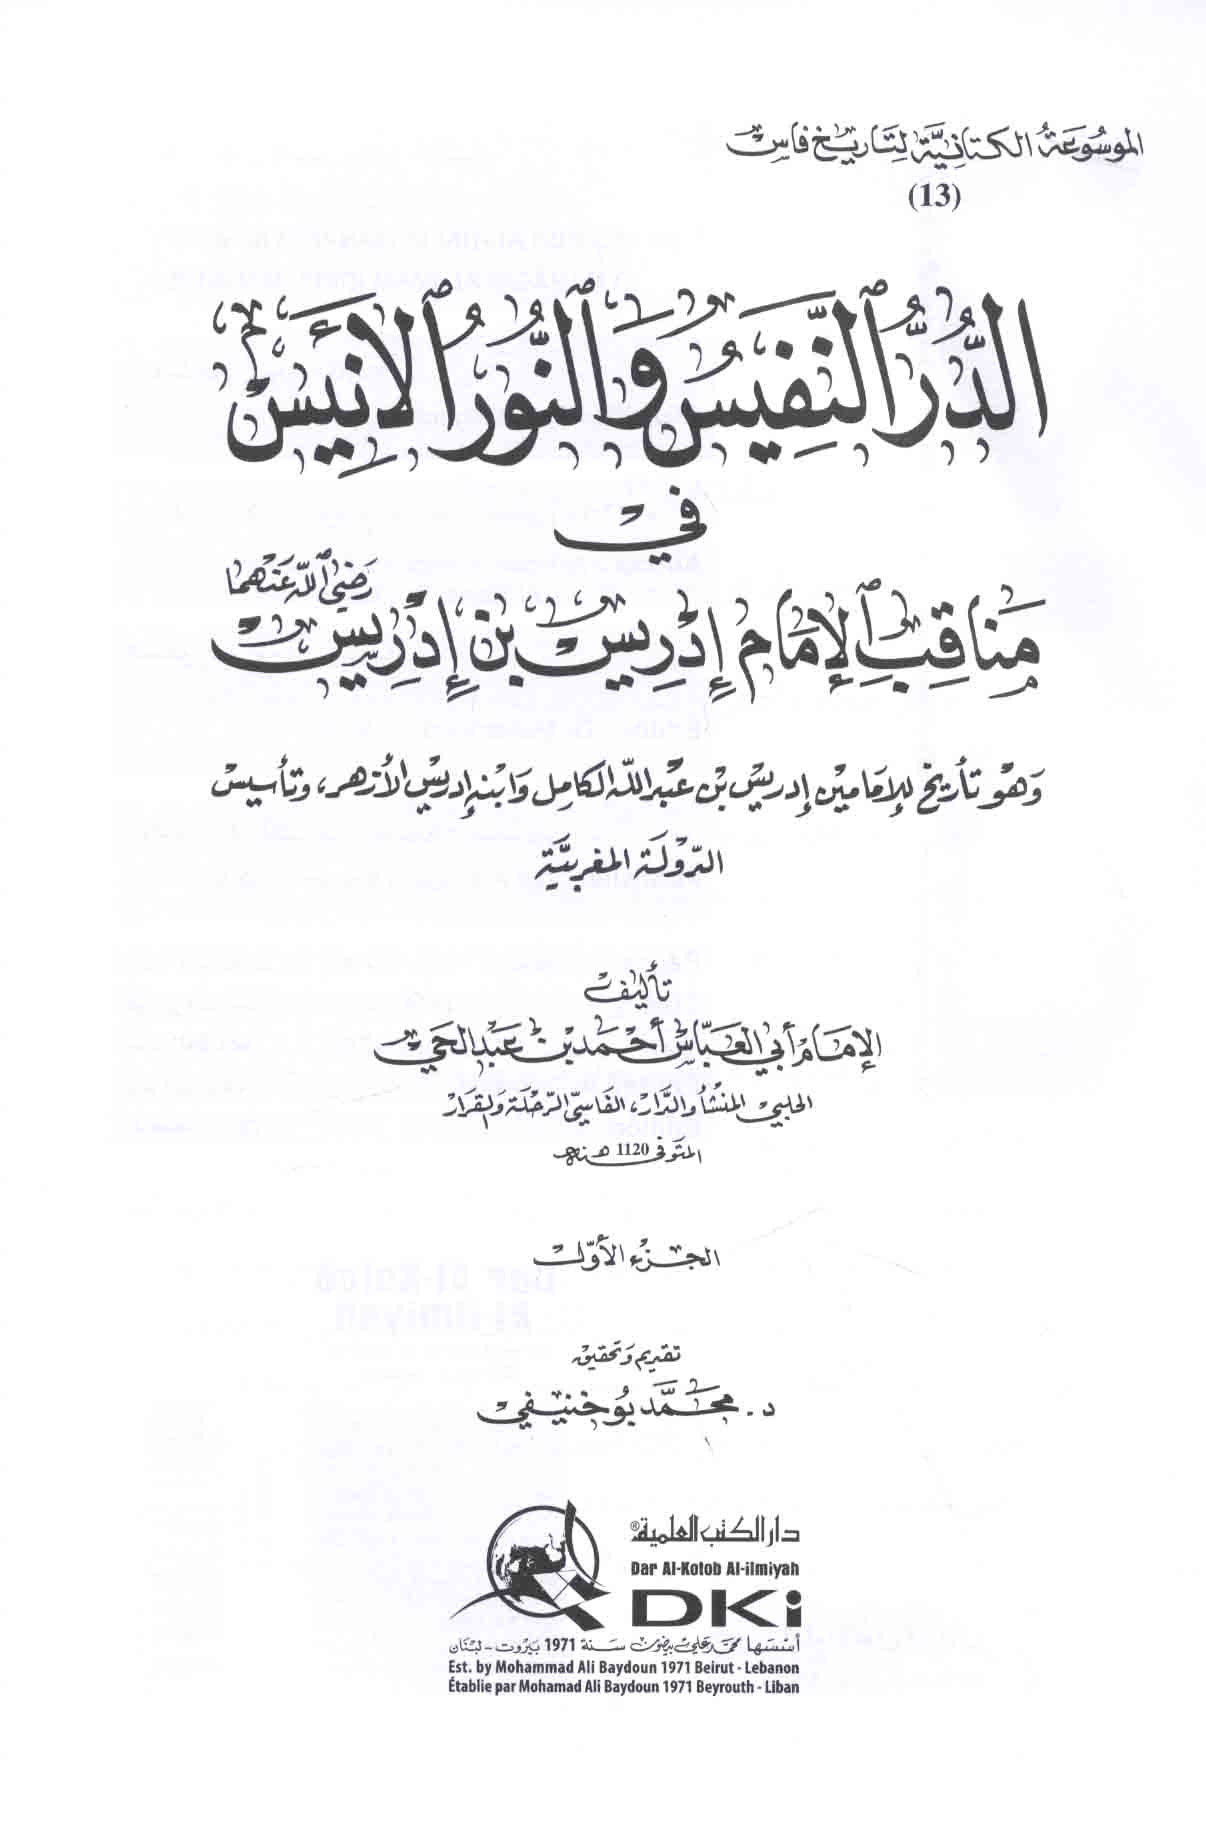 الموسوعة الكتانية لتاريخ فاس
(13)
الدُّرُّ النَّفِيسُ وَالنُّورُ الأَنِيسُ
في
مَنَاقِبِ الإِمَامِ إِدْرِيسَ بْنِ إِدْرِيسَ رَضِيَ اللهُ عَنْهُمَا
وَهُوَ تأريخ للإمامين إدريس بن عبد الله الكامل وابنه إدريس الأزهر، وتأسيس
الدّولة المغربيّة
تأليف
الإمام أبي العبّاس أحمد بن عبد الحي
الحلبي المنشأ والدّار، الفاسيّ الرّحلة والقرار
المتوفى 1120 هـ
الجزء الأوّل
تقديم وتحقيق
د. محمّد بوخنيفي
دار الكتب العلمية®
Dar Al-Kotob Al-ilmiyah
DKi
أسسها محمد علي بيضون سنة 1971 بيروت - لبنان
Est. by Mohammad Ali Baydoun 1971 Beirut - Lebanon
Établie par Mohamad Ali Baydoun 1971 Beyrouth - Liban